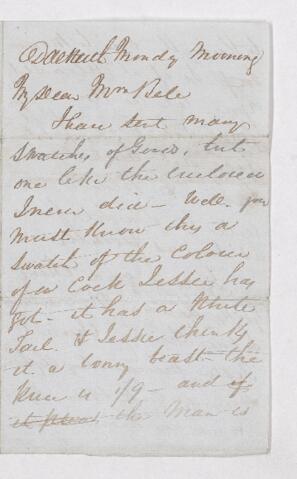 Dalkeith Monday Morning
My Dear Mrs Bele
I have sent many
Swatches of Goods, but
one like the inclosed
I never did - Well you
must know this a
Swatch of the Colour
of a Cock Jessie has
got - it has a White
Tail & Jessie thinks
it a bonny beast - the
Price is 1/9 - and if
it pleas the Man is